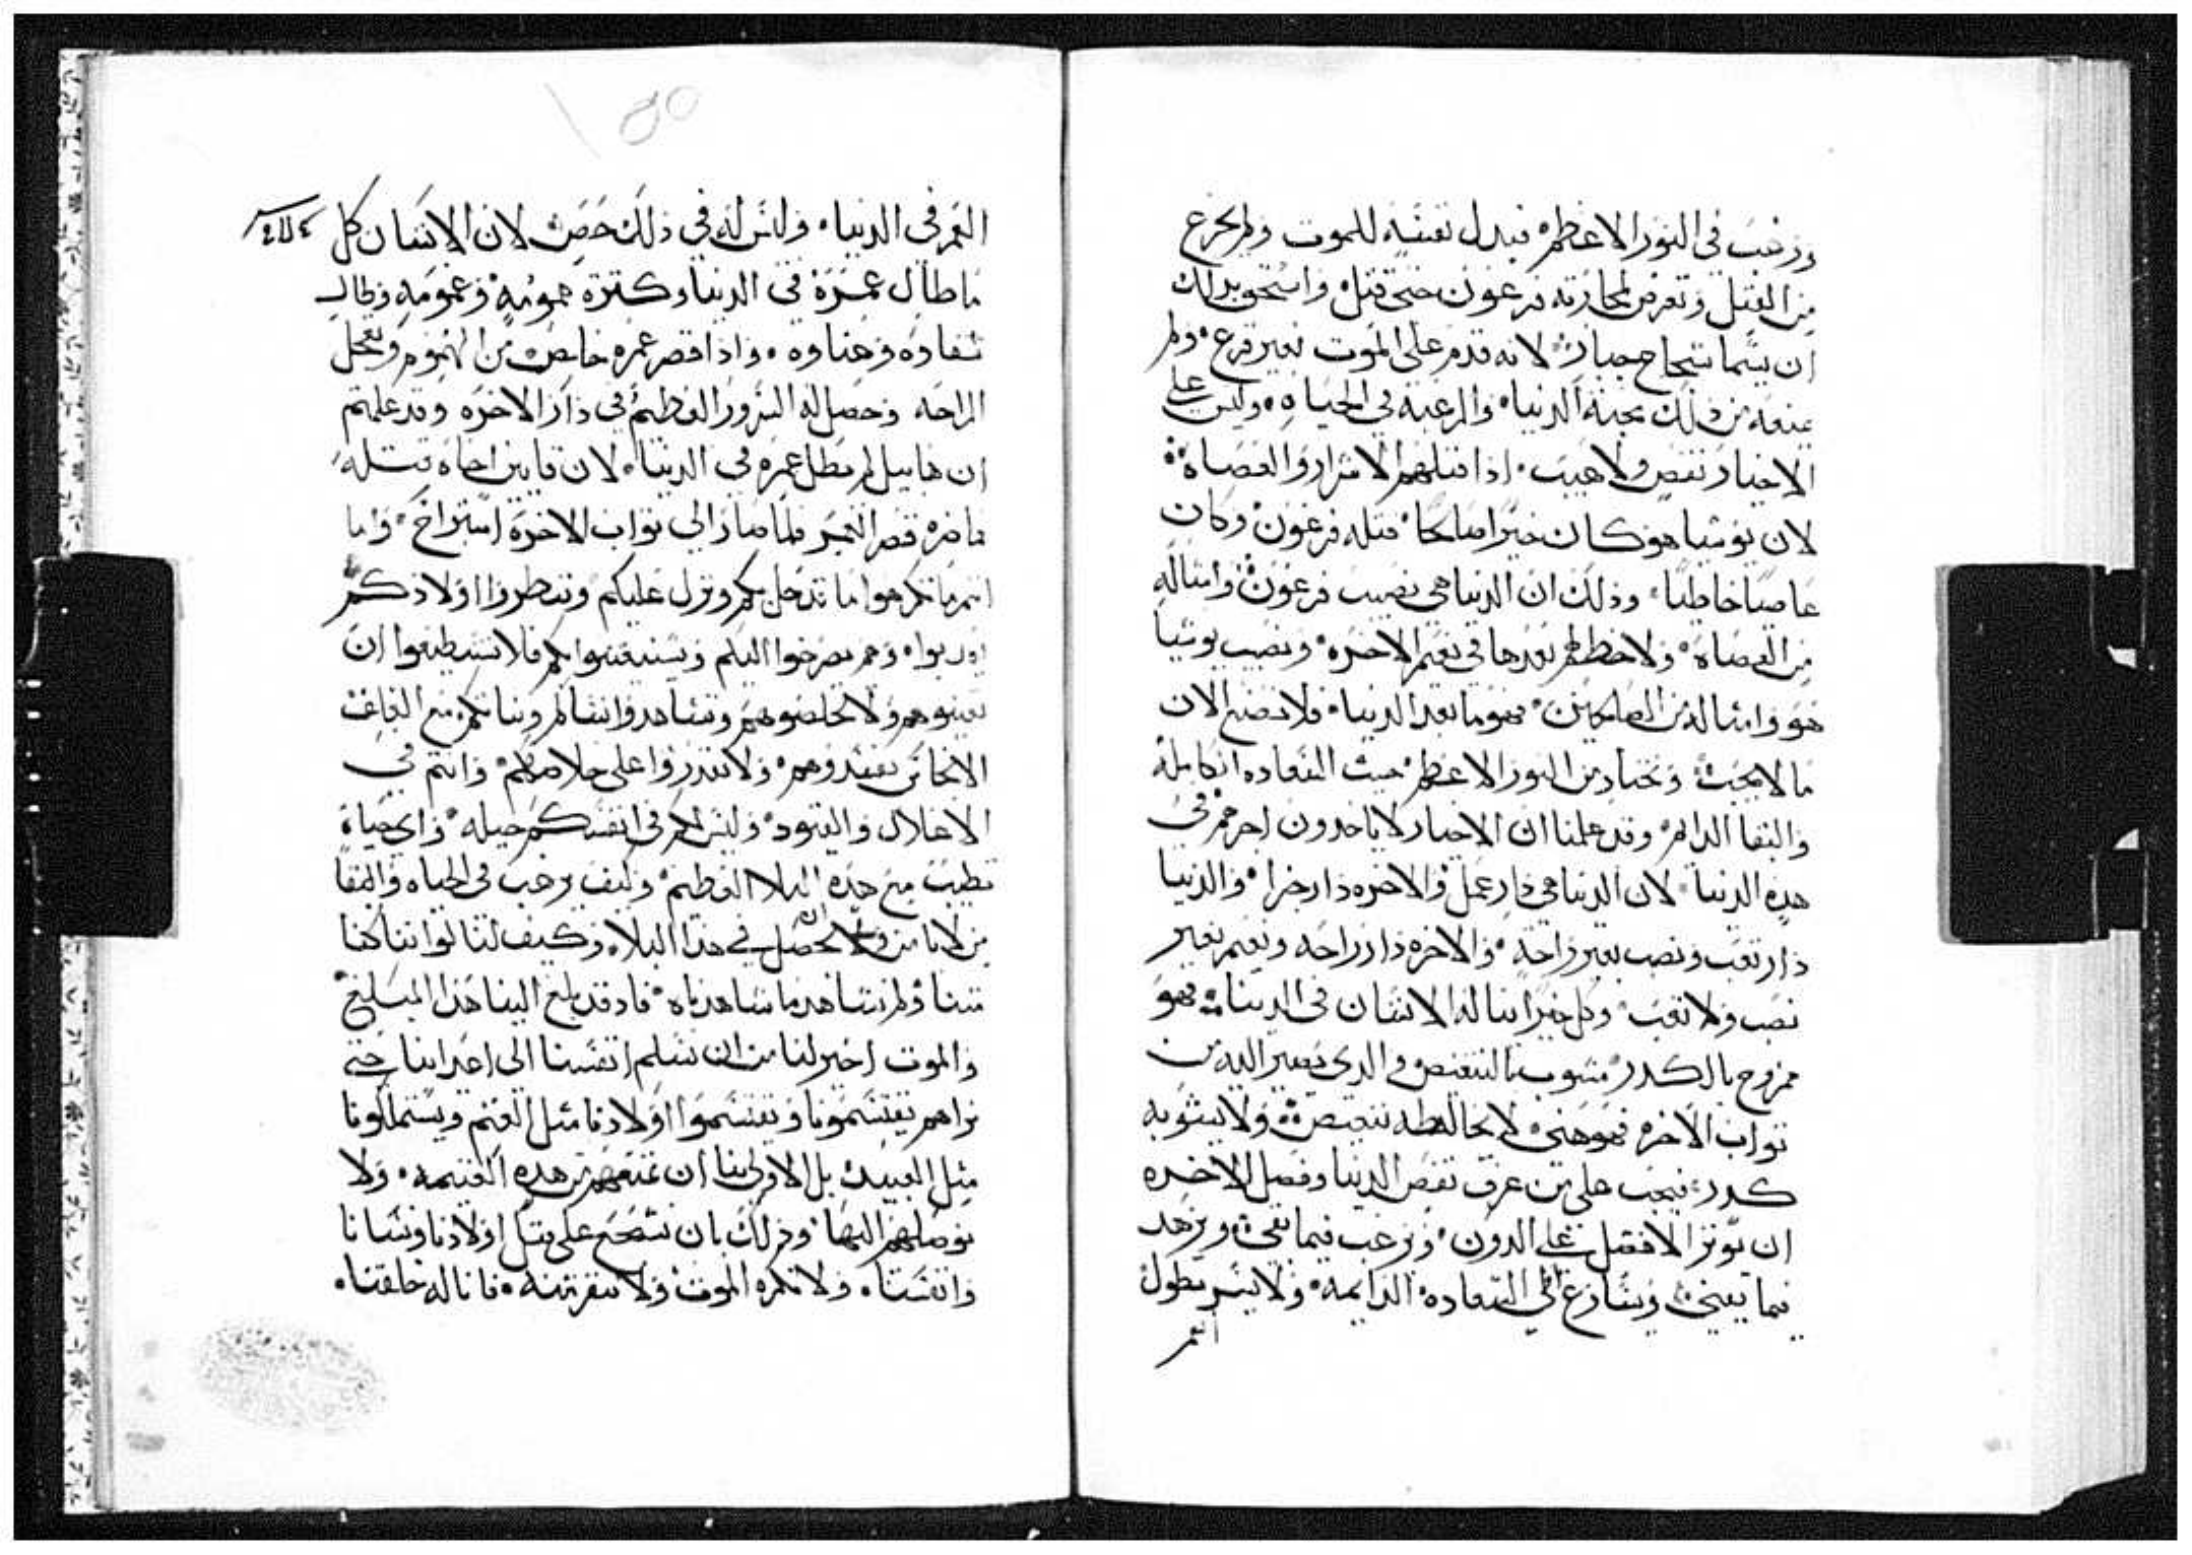 ورغب في النور الاعظم فبدل نفسه للموت ولم يجزع
من القتل وتعرض لمحاربة فرعون حتى قتل واستحق بذلك
ان يسما شجاع جبار لانه قدم على الموت بغير فزع ولم
يمنعه من ذلك محبة الدنيا والرغبة في الحياه وليس على
الاخيار نقص ولا عيب اذا قتلهم الاشرار والعصاة
لان يوشيا هو كان خيرا صالحا قتله فرعون وكان
عاصيا خاطيا وذلك ان الدنيا هي نصيب فرعون وامثاله
من العصاة ولا حظ لهم بعدها في نعيم الاخره ونصيب يوشيا
هو وامثاله من الصالحين فهو ما بعد الدنيا فلا نضع الان
ما لا يجب ونختار من النور الاعظم حيث السعاده الكاملة
والبقا الدايم وقد علمنا ان الاخيار لا ياخدون اجرهم في
هده الدنيا لان الدنيا هي دار عمل والاخره دار جزا والدنيا
دار تعب ونصب بغير راحة والاخره دار راحه ونعيم بغير
نصب ولا تعب وكل خير يناله الانسان في الدنيا فهو
ممزوج بالكدر مشوب بالتنغيص والدي يصير اليه من
تواب الاخره فهو هني لا يخالطه تنغيص ولا يشوبه
كدر فيجب على من عرف نقص الدنيا وفضل الاخره
ان يوتر الافضل على الدون ويرغب فيما يبقى ويزهد
فيما يفنى ويسارع الى السعاده الدايمه ولا يسر بطول
العمر
العمر في الدنيا وليس له في ذلك لان الانسان كل
ما طال عمره في الدنيا وكترة همومه وغمومه وطال
شقاوه وعناوه واذا قصر عمره خلص من الهموم وتعجل
الراحه وحصل له السرور العظيم في دار الاخره وقد علمتم
ان هابيل لم يطل عمره في الدنيا لان قاين اخاه قتله
فما ضره قصر العمر فلما صار الى تواب الاخرة استراح واما
انتم ما تكرهوا ما تدخل بكم ونزل عليكم وتنظروا اولادكم
وهم يصرخوا اليكم ويستغيثوا بكم فلا تستطيعوا ان
تعينوهم ولا تخلصوهم وتشاهدوا نسالم وبناتكم مع
الانجاس ولا تقدروا على خلاصهم وانتم في
الاغلال والقيود وليس لكم في انفسكم حيله واي حياة
تطيب مع هده البلا العظيم وكيف يرغب في الحياه والبقا
في هدا البلا وكيف لنا لو اننا كنا
متنا ولم نشاهد ما شاهدناه فاد قد بلغ الينا هدا المبلغ
والموت اخير لنا من ان نسلم انفسنا الى اعداينا حتى
نراهم يقتسمونا ويقتسموا اولادنا مثل الغنم ويستملكونا
مثل العبيد بل الاولى بنا ان نمنعهم من هده الغنيمه ولا
نوصلهم اليها ودلك بان نتشجع على قتل اولادنا ونسانا
وانفسنا ولا نكره الموت ولا ننفر منه فانا له خلقنا